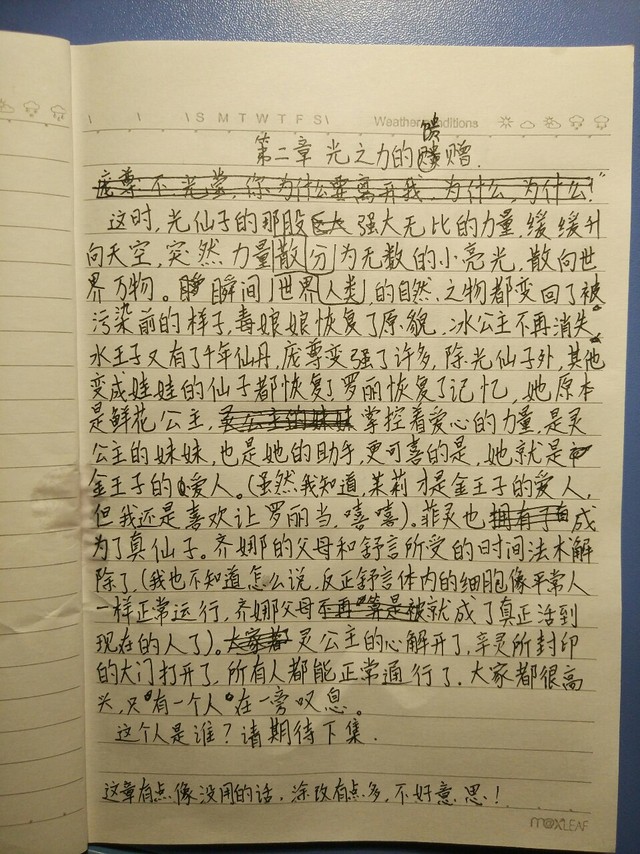 S M T W T F S
Weather conditions
第二章 光之力的馈赠.
庞尊:不,光莹,你为什么要离开我,为什么,为什么!"
这时,光仙子的那股强大无比的力量,缓缓升
向天空,突然力量散分为无数的小亮光,散向世
界万物。瞬间世界人类的自然之物都变回了被
污染前的样子,毒娘娘恢复了原貌,冰公主不再消失,
水王子又有了千年仙丹,庞尊变强了许多,除光仙子外,其他
变成娃娃的仙子都恢复了,罗丽恢复了记忆,她原本
是鲜花公主,灵公主的妹妹 掌控着爱心的力量,是灵
公主的妹妹,也是她的助手,更可喜的是,她就是
金王子的爱人。(虽然我知道,茉莉才是金王子的爱人,
但我还是喜欢让罗丽当,嘻嘻)。菲灵也拥有了 成
为了真仙子。齐娜的父母和舒言所受的时间法术解
除了,(我也不知道怎么说,反正舒言体内的细胞像平常人
一样正常运行,齐娜父母不再"算是被就成了真正活到
现在的人了)。大家都 灵公主的心解开了,辛灵所封印
的大门打开了,所有人都能正常通行了.大家都很高
兴,只"有一个人"在一旁叹息。
这个人是谁?请期待下集.
这章有点像没用的话,涂改有点多,不好意思!
maxLEAF